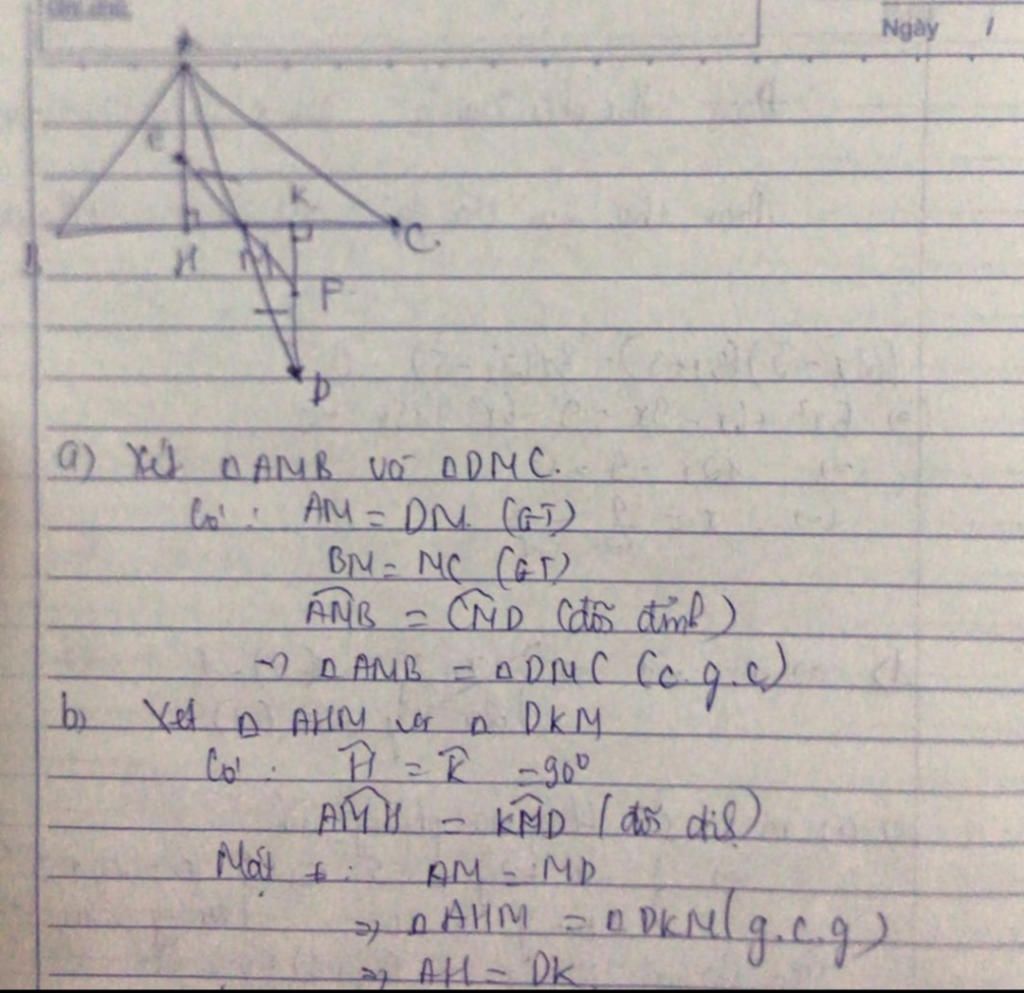 Ngày /
A
E
K
C
H
M
F
D
a) Xét ΔAMB và ΔDMC.
Có: AM = DM (GT)
BM = MC (GT)
AMB = CMD (đối đỉnh)
=> ΔAMB = ΔDMC (c.g.c)
b) Xét Δ AHM và Δ DKM
Có: H = K = 90°
AMH = KMD (đối đỉnh)
Mặt ≠: AM = MD
=> ΔAHM = ΔDKM (g.c.g)
=> AH = DK